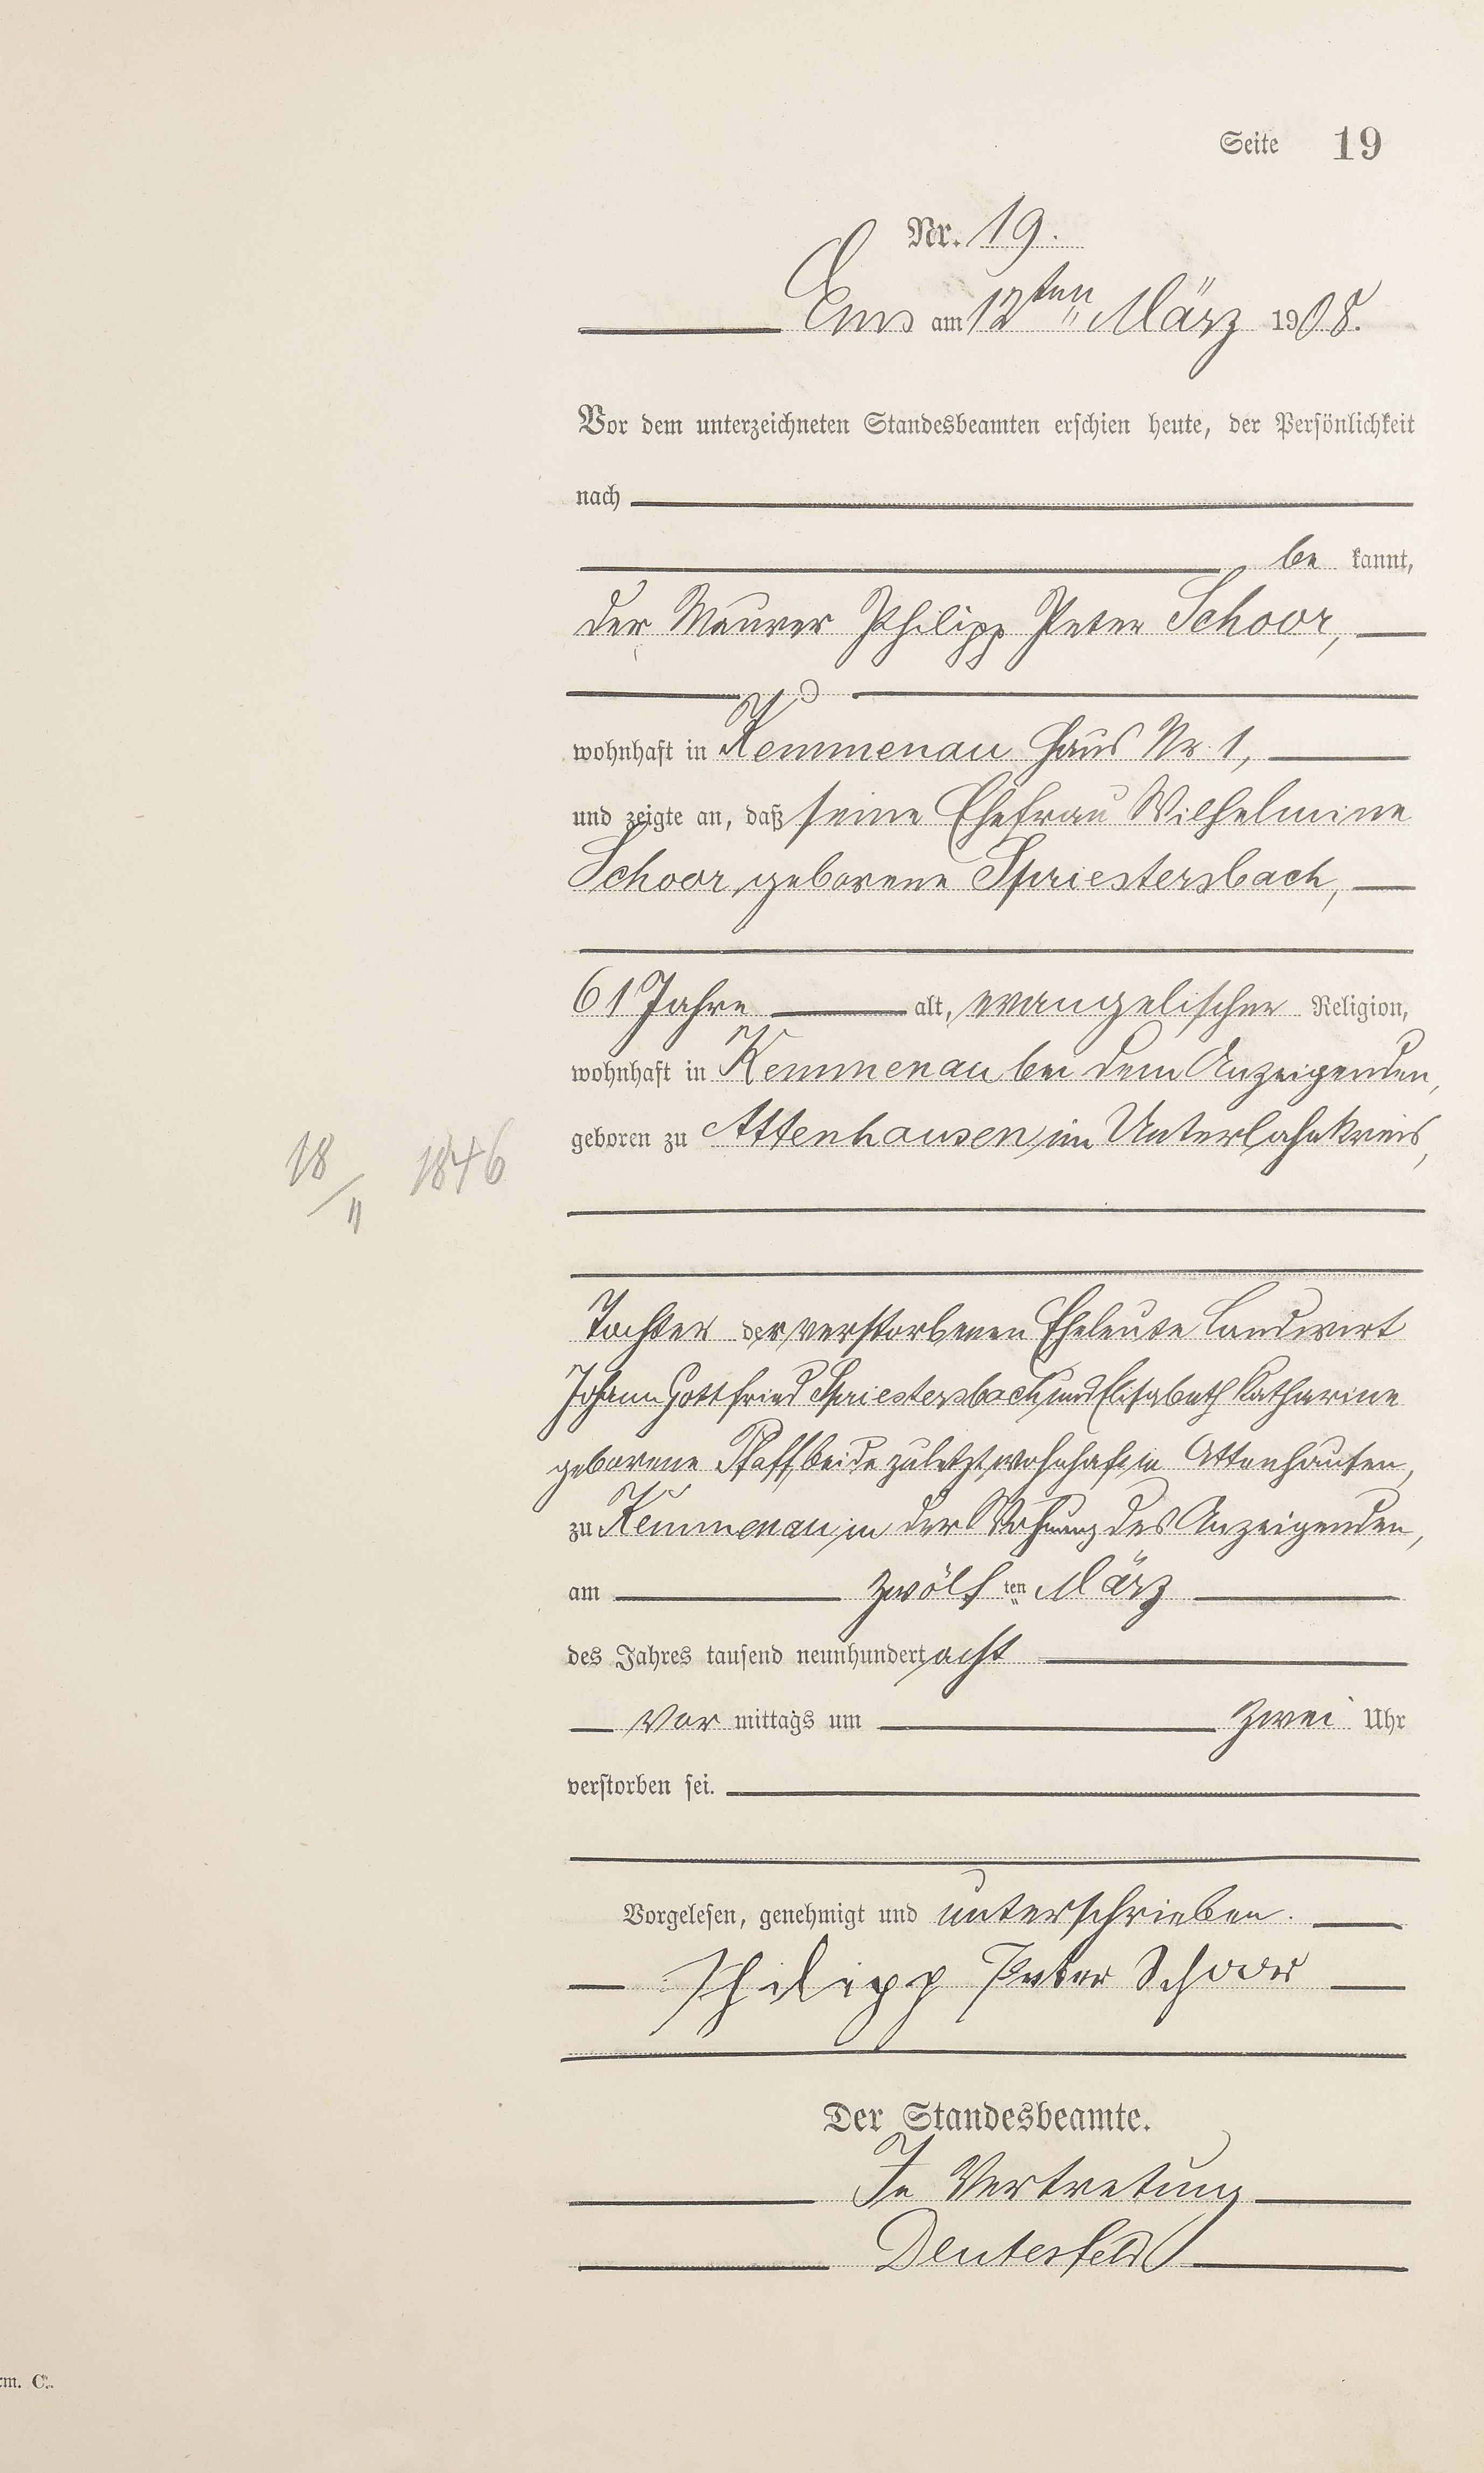 Seite 19
Nr. 19.
Ems am 12ten März 1908.
Vor dem unterzeichneten Standesbeamten erschien heute, der Persönlichkeit
nach
be kannt,
der Maurer Philipp Peter Schoor,
wohnhaft in Kemmenau Haus Nr. 1,
und zeigte an, daß seine Ehefrau Wilhelmine
Schoor, geborene Spriestersbach,
61 Jahre alt, evangelischer Religion,
wohnhaft in Kemmenau bei dem Anzeigenden,
geboren zu Attenhausen, im Unterlahnkreis,
18/11 1846
Tochter der verstorbenen Eheleute Landwirt
Johann Gottfried Spriestersbach und Elisabeth Katharine
geborene Pfaff, beide zuletzt wohnhaft in Attenhausen,
zu Kemmenau, in der Wohnung des Anzeigenden,
am zwölf ten März
des Jahres tausend neunhundert acht
Vor mittags um zwei Uhr
verstorben sei.
Vorgelesen, genehmigt und unterschrieben.
Philipp Peter Schoor
Der Standesbeamte.
In Vertretung
rm. C.